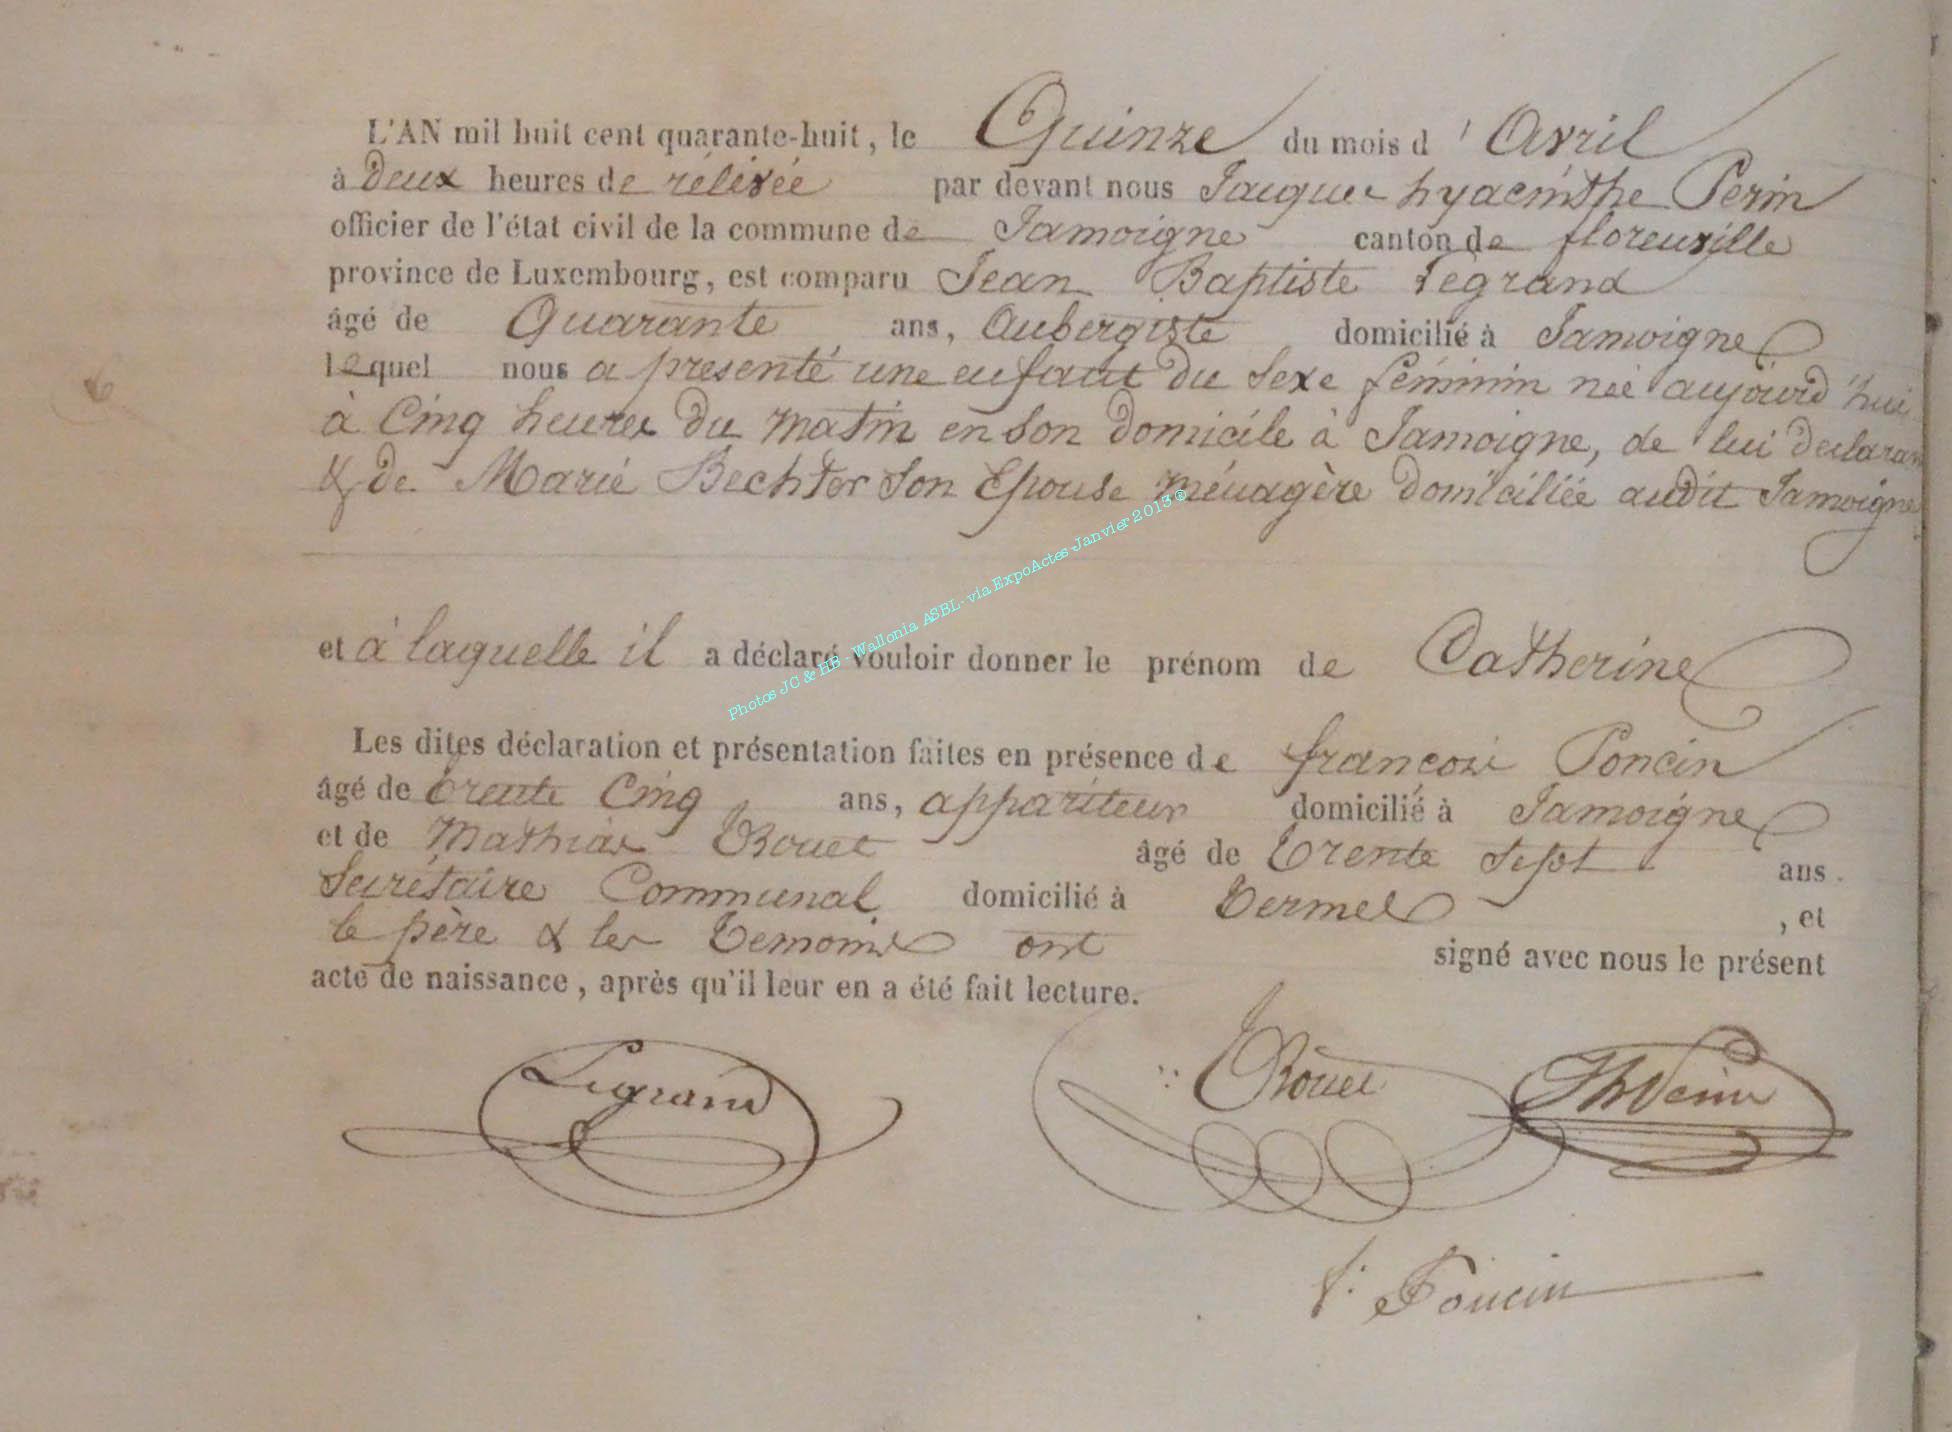 L'AN mil huit cent quarante-huit, le Quinze du mois d'Avril
à deux heures de rélévée par devant nous Jacques hyacinthe Perin
officier de l'état civil de la commune de Jamoigne canton de florenville
province de Luxembourg, est comparu Jean Baptiste Legrand
âgé de Quarante ans, Aubergiste domicilié à Jamoigne
lequel nous a presenté une enfant du sexe féminin née aujourd'hui
à Cinq heures du matin en son domicile à Jamoigne, de lui declarant
& de Marie Bechter son Epouse ménagère domiciliée audit Jamoigne
et à laquelle il a déclaré vouloir donner le prénom de Catherine
Les dites déclaration et présentation faites en présence de françois Poncin
âgé de trente Cinq ans, appariteur domicilié à Jamoigne
et de Mathias Rouet âgé de trente sept ans.
Secrétaire Communal domicilié à Termes, et
le père & les temoins ont signé avec nous le présent
acte de naissance, après qu'il leur en a été fait lecture.
Legrand Rouet JhPerin
f: Poncin
Photos JC & HB - Wallonia ASBL- via ExpoActes-Janvier 2013 ®